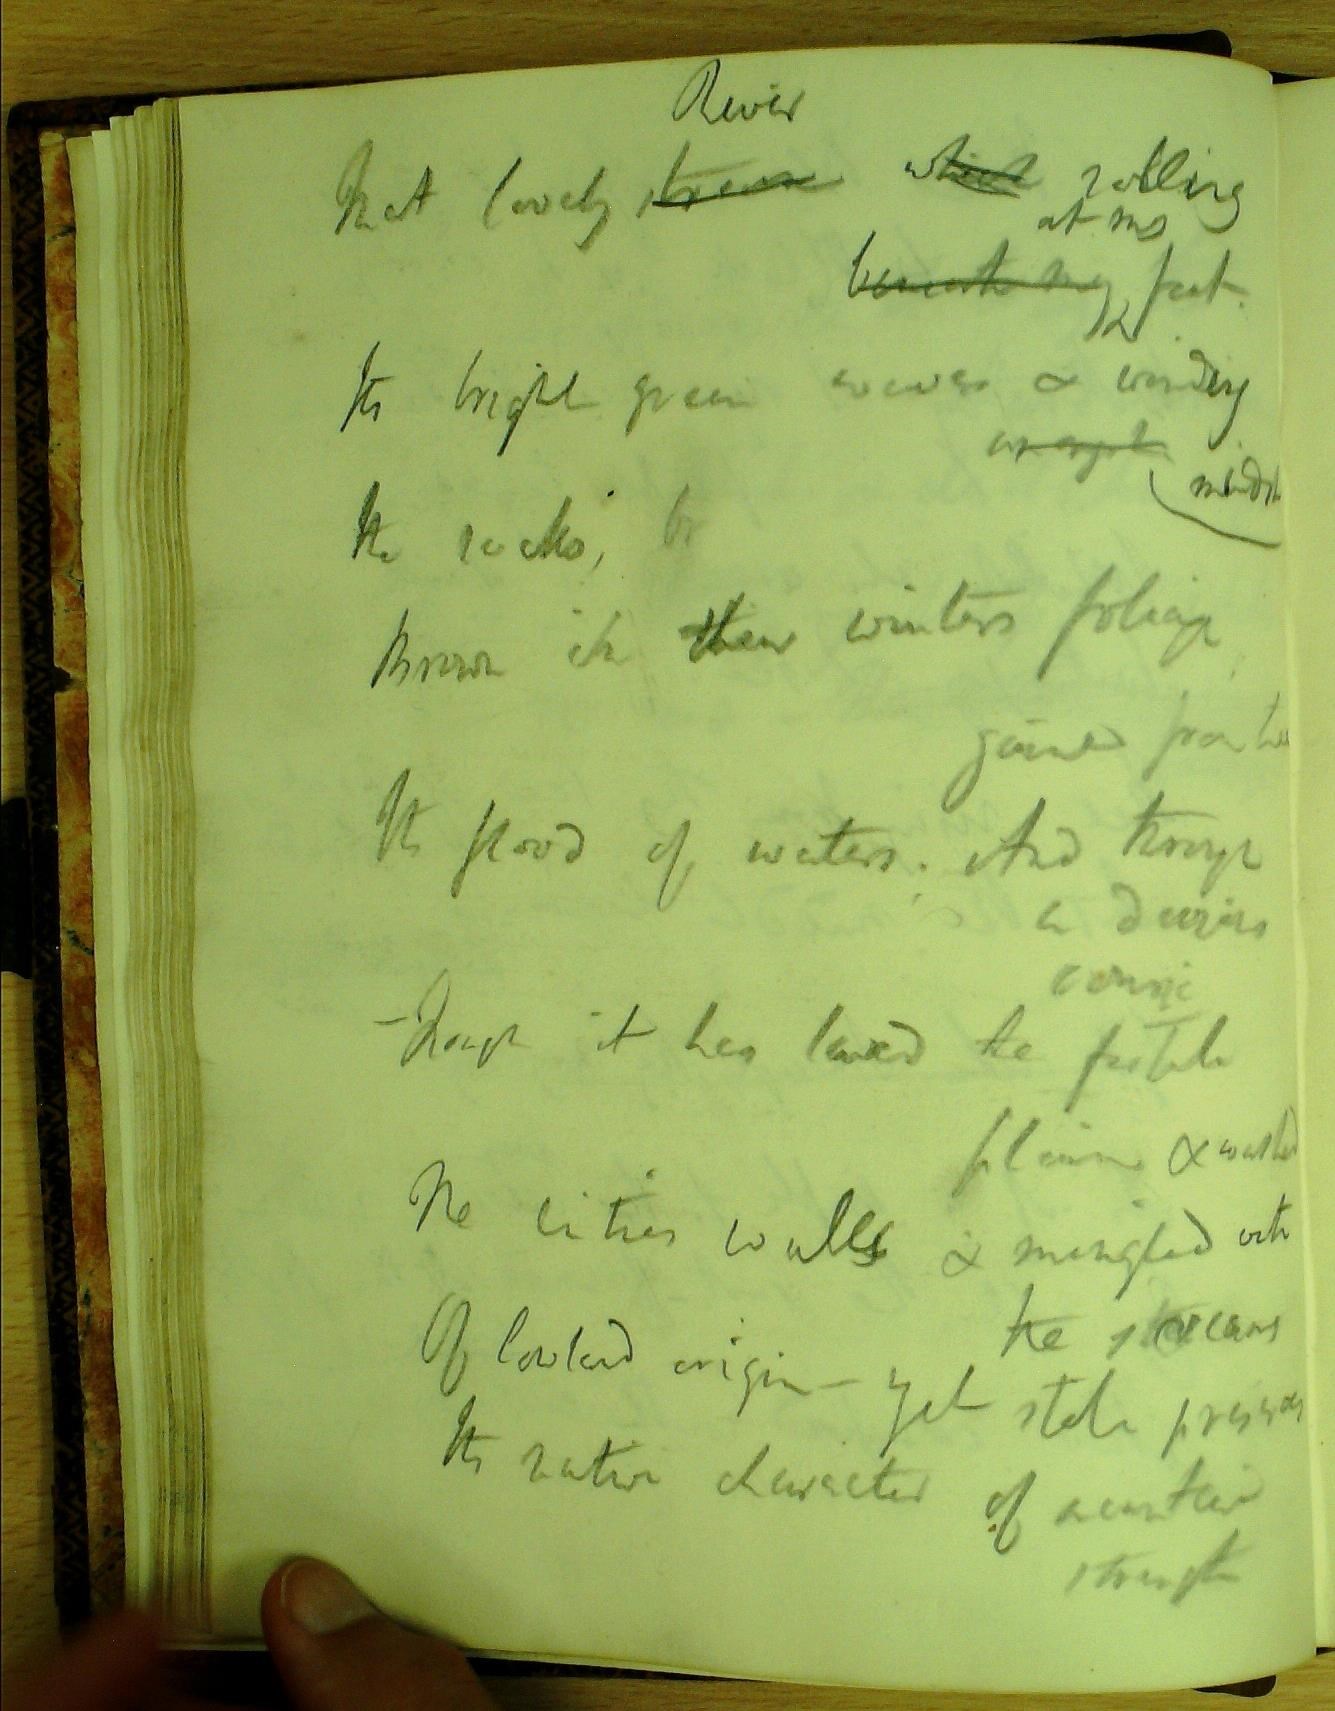 River
That lovely stream which rolling
at my
beneath my feet.
Its bright green waves & winding
The rocks, br
Brown in their winters foliage
gained from the
Its flood of waters. And though
a
Though it has laved the fertile
plains & washed
The cities walls & mingled with
the streams
Of lowland origin – yet still preserves
Its native character of mountain
strength